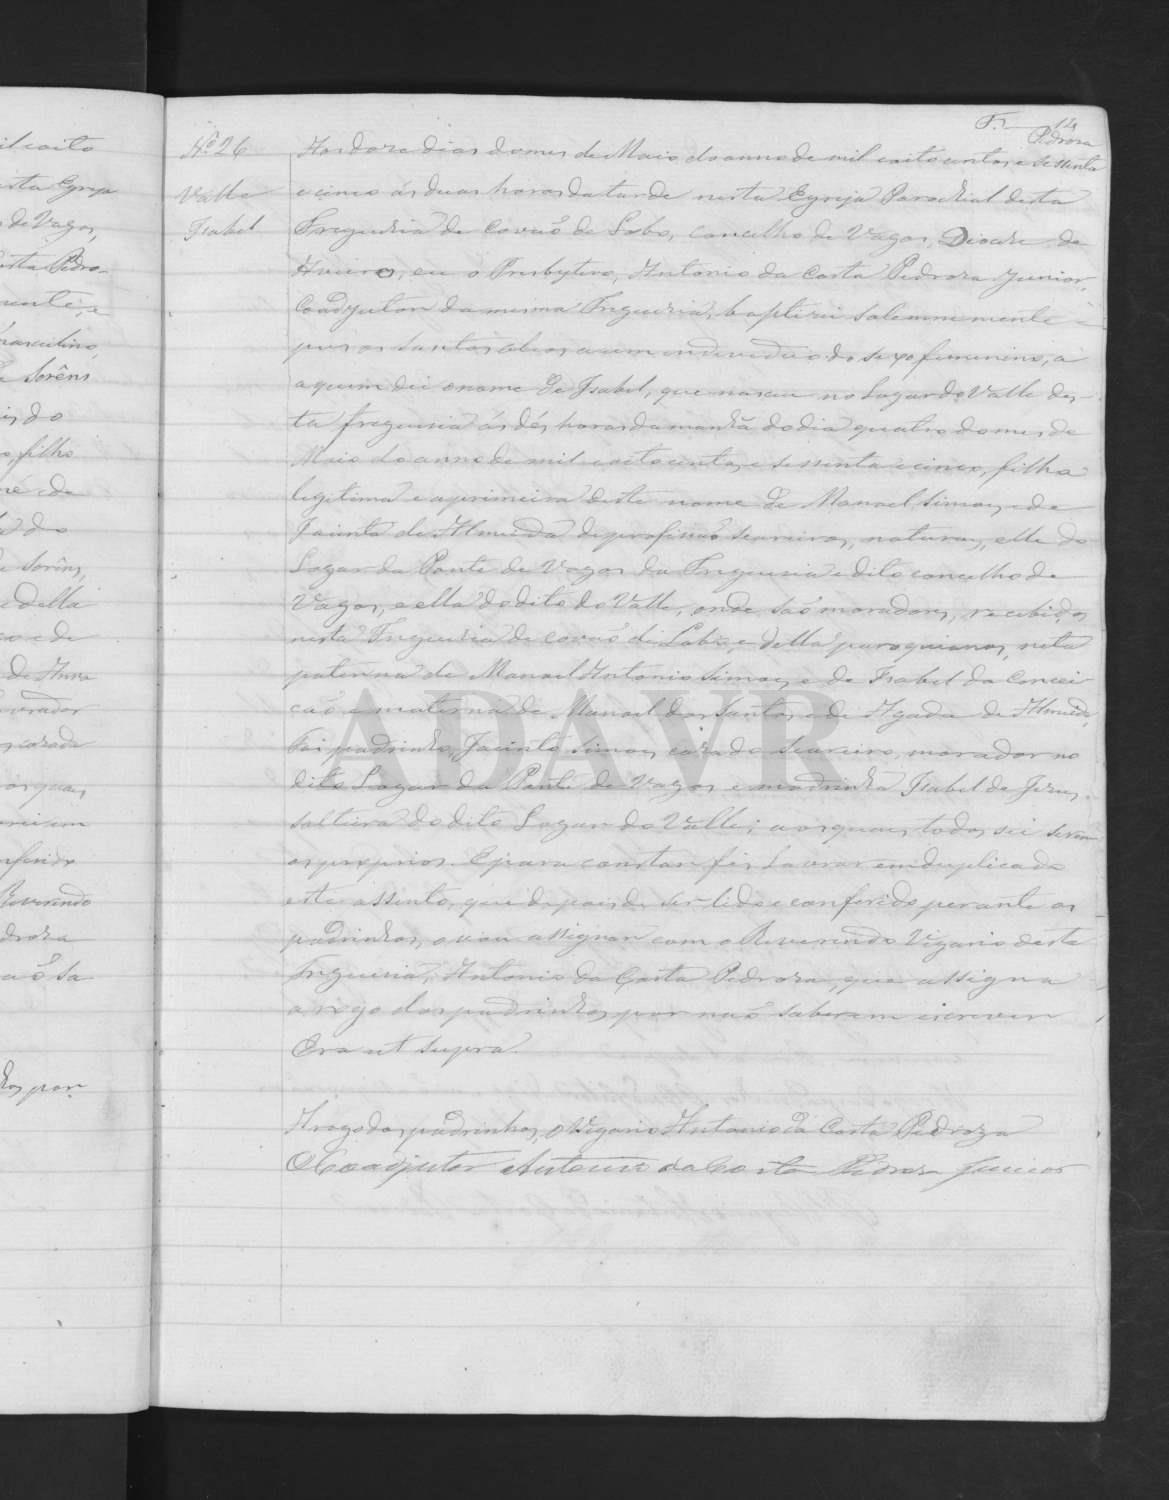 F. 14
Pedroza
Nº 26
Valle
Isabel
Aos doze dias do mes de Maio do anno de mil e oito centos e sessenta
e cinco ás duas horas da tarde nesta Egreja Parochial desta
Freguezia de Covaõ do Lobo, concelho de Vagos, Diocese de
Aveiro, eu o Presbytero, Antonio da Costa Pedroza Junior,
Coadjutor da mesma Freguezia, baptizei solemnemente e
puz os santos oleos a um individuo do sexo femenino, a
a quem dei o nome de Isabel, que nasceu no Lugar do Valle des-
ta freguezia ás dés horas da manhã do dia quatro do mes de
Maio do anno de mil e oito centos e sessenta e cinco, filha
legitima e a primeira deste nome de Manoel Simoes e de
Jacinta de Almeida de profissaõ seareiros, naturaes, elle do
Lugar da Ponte de Vagos da Freguezia e dito concelho de
Vagos, e ella do dito do Valle, onde saõ moradores, recebidos
nesta Freguezia de Covaõ do Lobo, e della paroquianos, neta
paterna de Manoel Antonio Simoes e de Isabel da Concei-
caõ e materna de Manoel dos Santos e de Agada de Almeida,
Foi padrinho, Jacinto Simoes, cazado Seareiro, morador no
dito Lugar da Ponte de Vagos e madrinha Isabel de Jezus,
solteira do dito Lugar do Valle; a os quaes todos sei serem
os proprios. E para constar fiz lavrar em duplicado
este assento, que depois de ser lido e conferido perante os
padrinhos, o vou assignar com o Reverendo Vigario desta
Freguezia, Antonio da Costa Pedroza, que assigna
a rogo dos padrinhos por naõ saberem escrever
Era ut supra.
A rogo dos padrinhos, o Vigario Antonio da Costa Pedroza
O Coadjutor Antonio da Costa Pedroza Junior
ADAVR